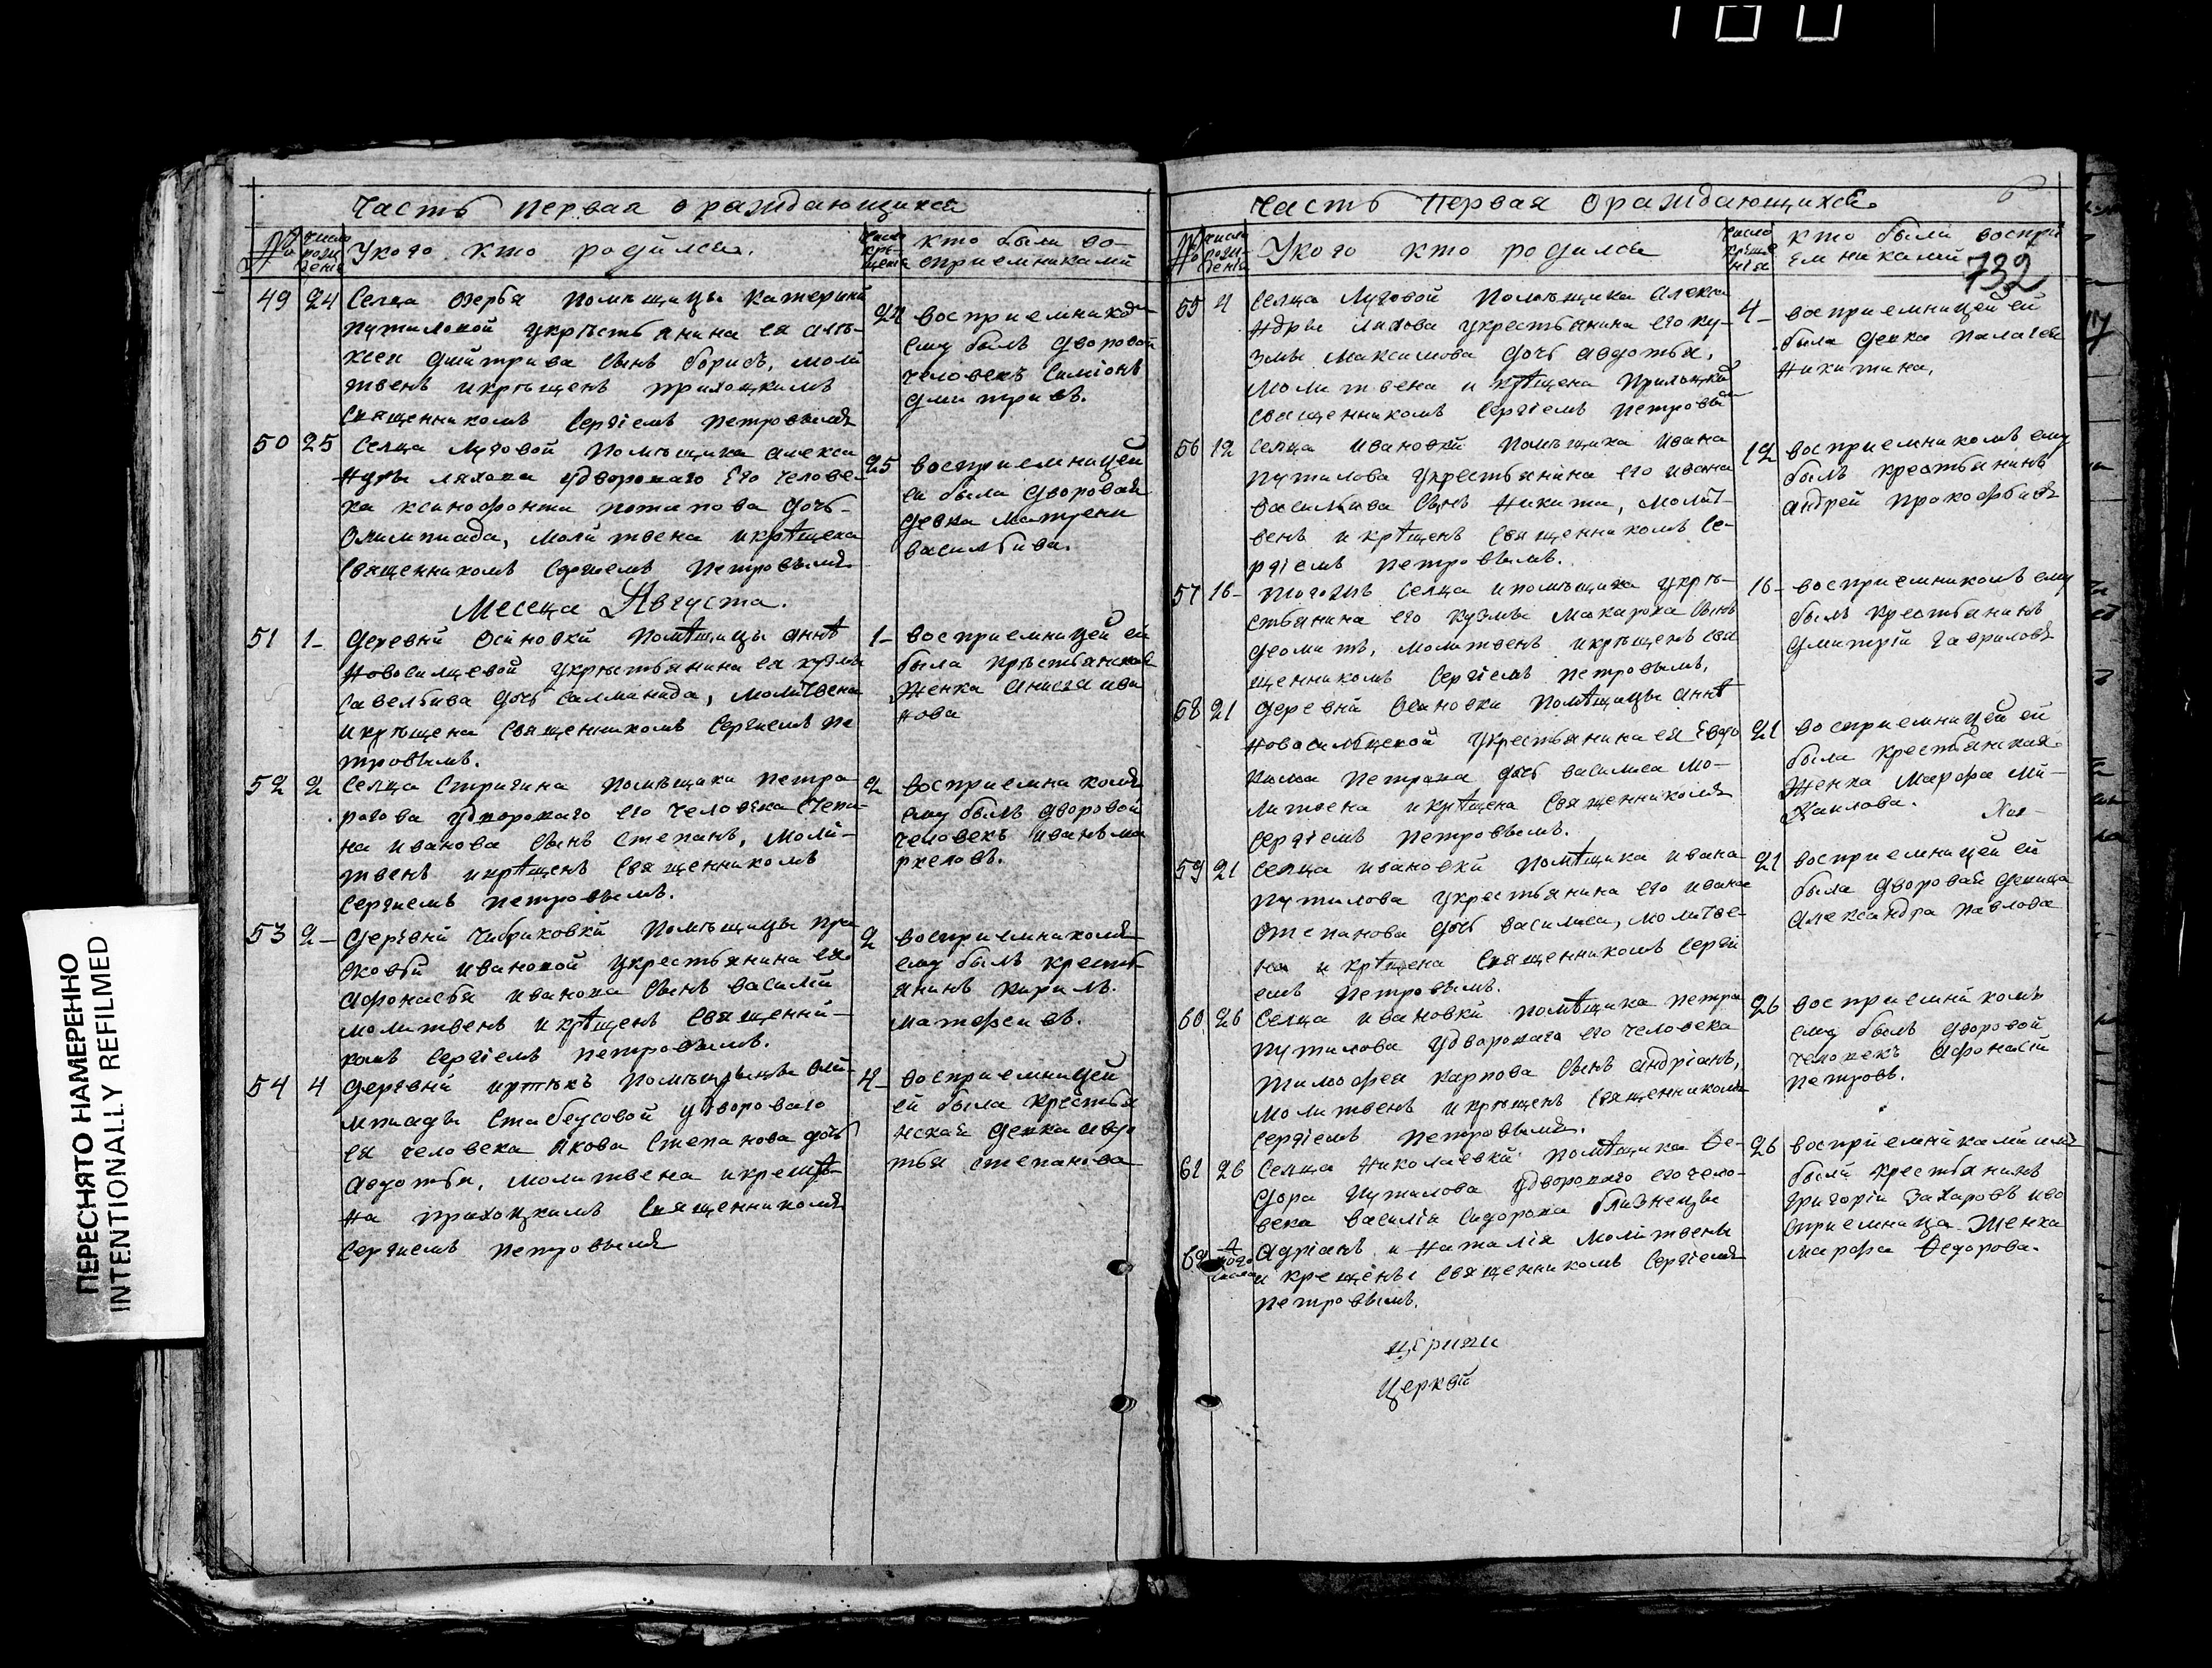 Часть первая о раждающихся
№
число рождения
У кого кто родился.
число крещения
кто были во-
сприемниками
49 24 Селца Озерья помѣщицы Катерины
Путиловой укрѣстьянина ея алѣ-
ксея Дмитрива сынъ борисъ, моли
твенъ икрѣщенъ прихоцкимъ
священникомъ Сергiемъ Петровымъ
24 восприемникомъ
ему былъ дворовой
человекъ Симiонъ
Дмитривъ.
50 25 Селца Луговой помѣщика алекса
ндры ляхова удворового Его челове-
ка ксинофонта потапова дочь
Олимпиада, молитвена икрѣщена
священникомъ Сергиемъ Петровымъ
25 восприемницей
ей была дворовая
девка матрена
васильива.
Месеца Августа.
51 1 деревни Осиновки помѣщицы аннѣ
Новосилцевой укрѣстьянина ея кузмы
Савельива дочь Салманида, молитвена
икрѣщена священникомъ Сергиемъ Пе
тровымъ.
1 восприемницей ей
была крѣстьянская
женка Анисья ива
нова
52 2 Селца Стригина помѣщика петра
рогова удворового его человека Степа-
на иванова сынъ Степанъ, моли-
твенъ икрѣщенъ священникомъ
Сергиемъ Петровымъ.
2 восприемникомъ
ему былъ дворовой
человекъ иванъ ма
ркеловъ.
53 2 деревни Чибриковки помѣщицы пра
сковьи ивановой укрестьянина ея
афонасья иванова сынъ василий
молитвенъ икрѣщенъ священни-
комъ Сергiемъ Петровымъ.
2 восприемникомъ
ему былъ кресть
янинъ кирилъ
матфеивъ.
54 4 деревни помѣщицы оли-
мпиады удворового
ея человека Якова Степанова дочь
авдотья, молитвена икрещѣ
на прихоцкимъ священникомъ
Сергиемъ Петровымъ
4 восприемницей
ей была крестья
нская девка авдо
тья степанова
Часть Первая Ораждающихся.
6
№
число рождения
Укого кто родился
число крещения
кто были воспри
емниками
732
55 4 Селца Луговой помѣщика алекса
ндры ляхова укрестьянина его ку-
змы максимова дочь авдотья,
молитвена и крѣщена прихоцкимъ
священникомъ Сергiемъ Петровым
4 восприемницей ей
была девка палагея
Никитина.
56 12 Селца ивановки помѣщика ивана
путилова укрестьянина его ивана
васильива сынъ Никита, молит-
венъ и крѣщенъ священникомъ Се-
ргiемъ Петровымъ.
12 восприемникомъ ему
былъ крестьянинъ
андрей прокофьивъ
57 16 тогожъ селца ипомѣщика укрѣ-
стьянина его кузмы макарова сынъ
диомитъ, молитвенъ икрѣщенъ свя
щенникомъ Сергiемъ Петровымъ.
16 восприемникомъ ему
былъ крестьянинъ
дмитрiй гавриловъ
58 21 деревни Осиновки помѣщицы аннѣ
новосильцевой укрестьянина ея Евдо
кима Петрова дочь василиса мо-
литвена икрѣщена священникомъ
Сергiемъ Петровымъ.
21 восприемницей ей
была крестьянская
женка Марфа Ми-
хаилова.
59 21 Селца ивановки помѣщика ивана
путилова укрестьянина его ивана
Степанова дочь василиса, молитве-
на и крѣщена священникомъ Сергi
емъ Петровымъ.
21 восприемницей ей
была дворовая девица
Александра Павлова
60 26 Селца ивановки помѣщика петра
путилова удворового его человека
тимофея карпова сынъ андрiанъ,
молитвенъ икрѣщенъ священникомъ
Сергiемъ Петровымъ.
26 восприемникомъ
ему былъ дворовой
человекъ афонасiй
петровъ.
61 26 Селца Николаевки помѣщика Фе-
дора Путилова удворового его чело-
века василiя сидорова близнецы
62 того числа Адрiанъ и Наталiя молитвены
и крещены священникомъ Сергiемъ
Петровымъ.
26 восприемниками имъ
были крестьянинъ
григорiй Захаровъ иво
сприемница женка
марфа Федорова.
Церкви
ПЕРЕСНЯТО НАМЕРЕННО
INTENTIONALLY REFILMED